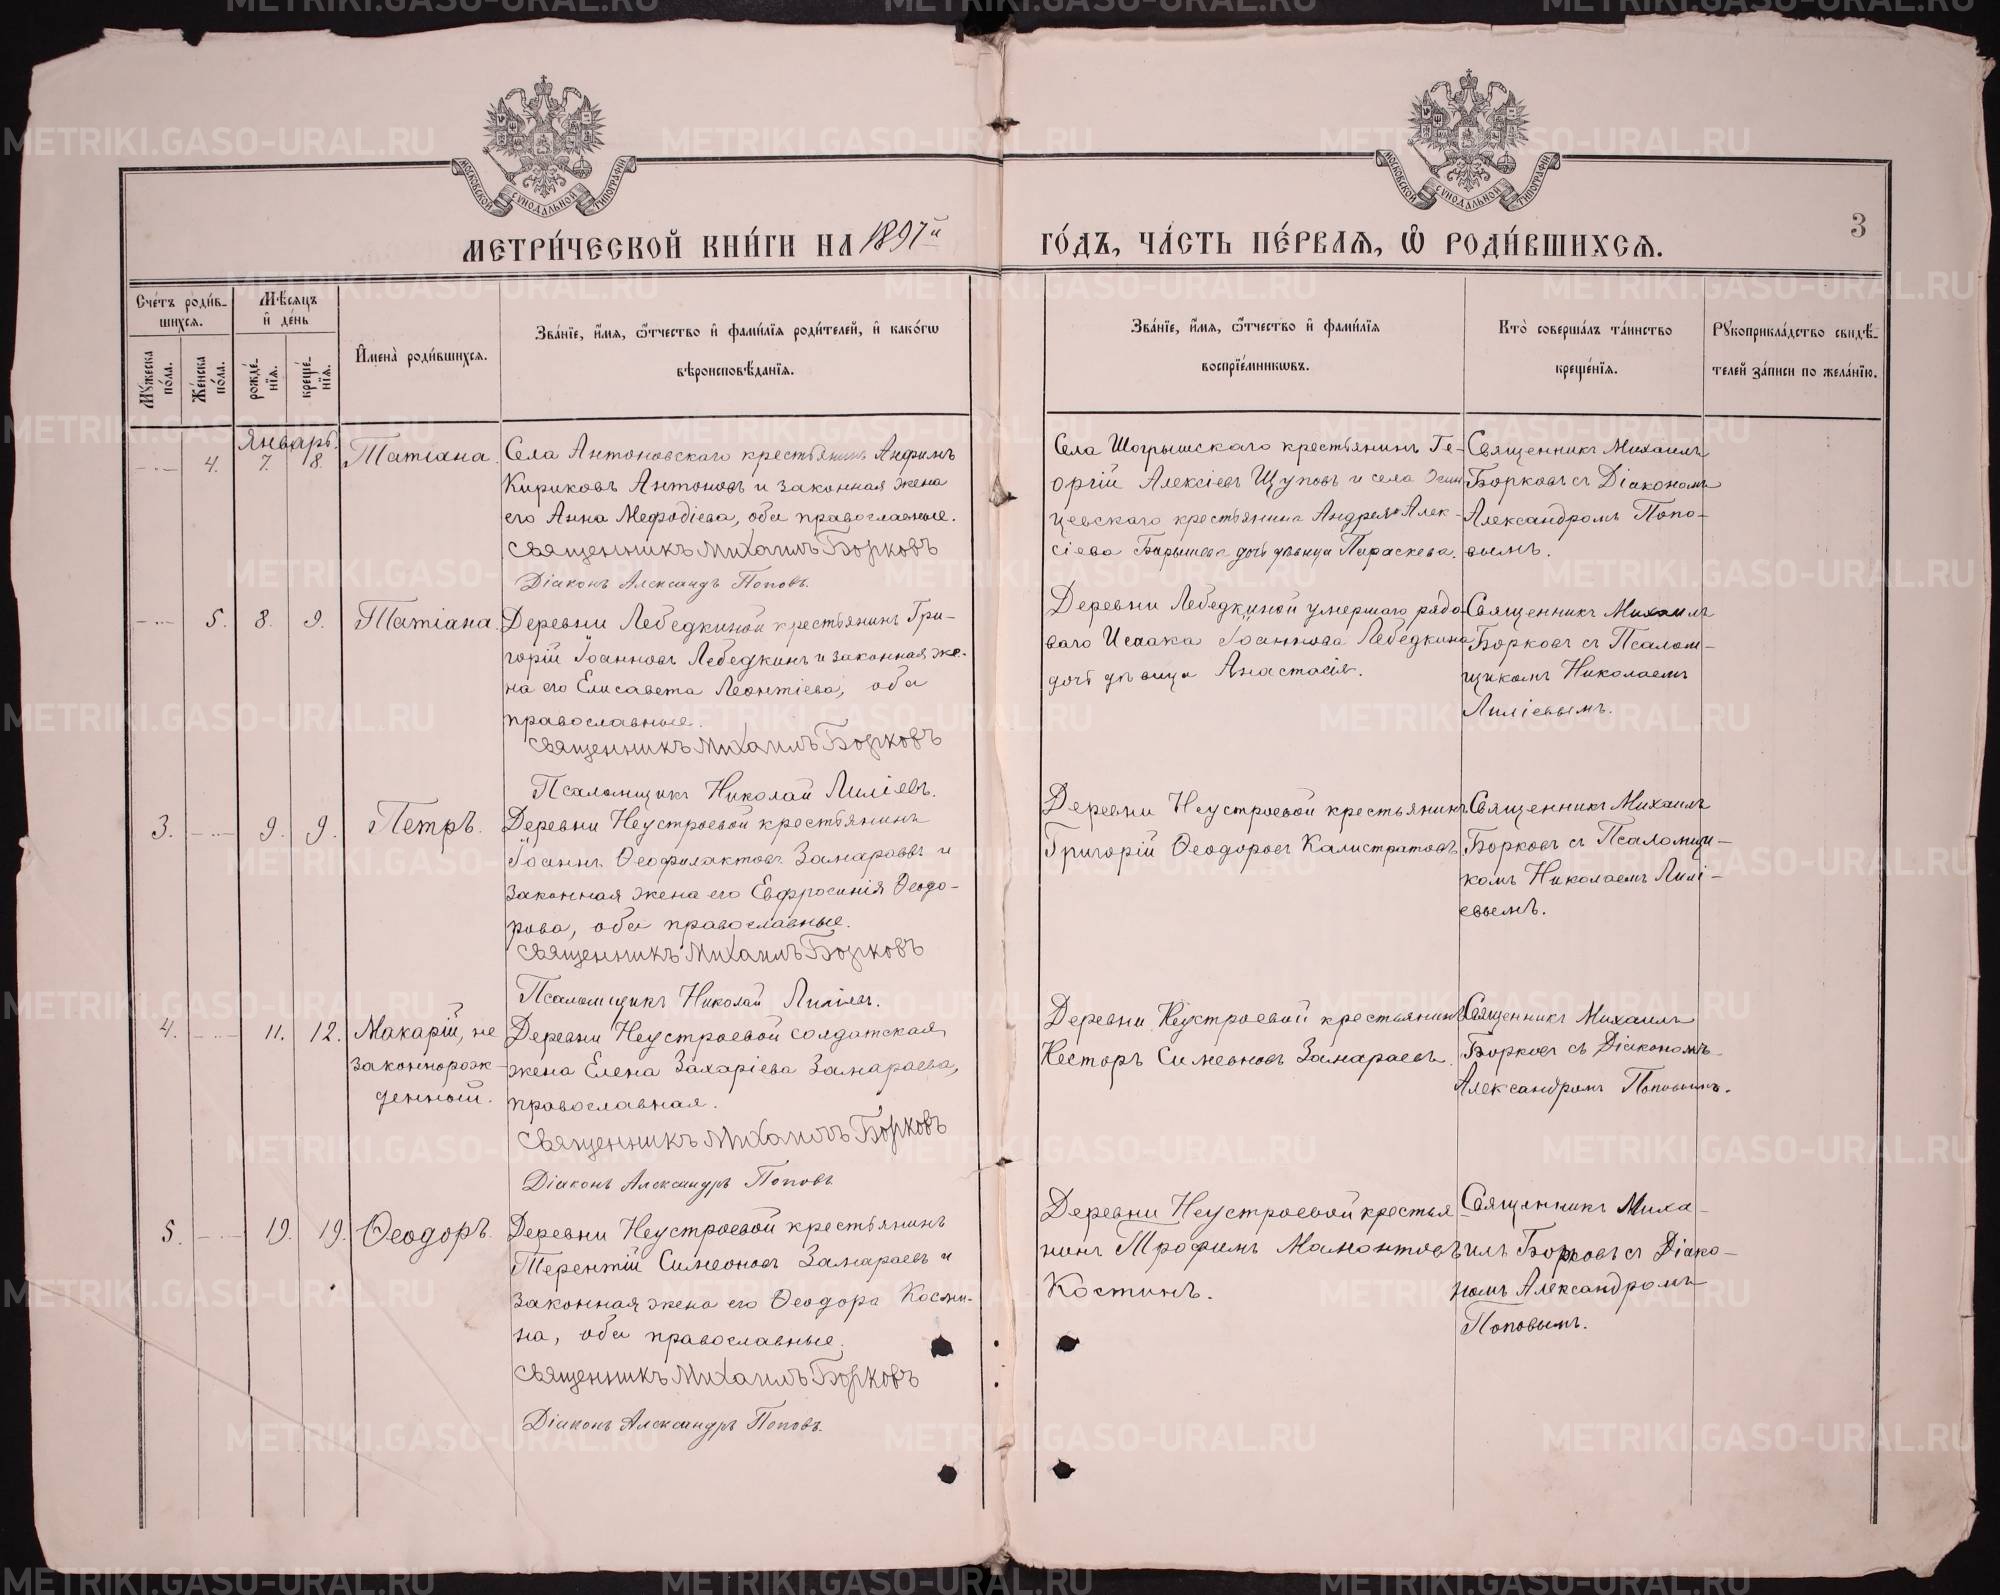 МОСКОВСКОЙ СУНОДАЛЬНОЙ ТИПОГРАФИИ
МОСКОВСКОЙ СУНОДАЛЬНОЙ ТИПОГРАФИИ
3
МЕТРИ́ЧЕСКОЙ КНИ́ГИ НА 1897й ГО́ДЪ, ЧА́СТЬ ПЕ́РВАѦ, Ѡ РОДИ́ВШИХСѦ.
Сче́тъ роди́в-
шихсѧ.
Мѣ́сѧцъ
и҆ де́нь
Мꙋ́жеска
по́ла.
Же́нска
по́ла.
рожде́-
нїѧ.
креще́-
нїѧ.
И҆мена̀ роди́вшихсѧ.
Зва́нїе, и҆́мѧ, ѻ҆́тчество и҆ фами́лїѧ роди́телей, и҆ како́гѡ
вѣроисповѣ́данїѧ.
Зва́нїе, и҆́мѧ, ѻ҆́тчество и҆ фами́лїѧ
воспрїе́мникѡвъ.
Кто̀ соверша́лъ та́инство
креще́нїѧ.
Рꙋкоприкла́дство свидѣ́-
телей за́писи по жела́нїю.
Январь.
4. 7. 8. Татіана.
Села Антоновскаго крестьянинъ Анфимъ
Кириковъ Антоновъ и законная жена
его Анна Меѳодіева, оба православные.
Священникъ Михаилъ Борковъ
Діаконъ Александръ Поповъ.
Села Шогрышскаго крестьянинъ Ге-
оргій Алексіевъ Щуповъ и села
цевскаго крестьянина Андрея Алек-
сіева дочь дѣвица Параскева.
Священникъ Михаилъ
Борковъ съ Діакономъ
Александромъ Попо-
вымъ.
5. 8. 9. Татіана.
Деревни Лебедкиной крестьянинъ Гри-
горій Іоанновъ Лебедкинъ и законная же-
на его Елисавета Леонтіева, оба
православные.
Священникъ Михаилъ Борковъ
Псаломщикъ Николай Лиліевъ.
Деревни Лебедкиной умершаго рядо-
ваго Исаака Іоаннова Лебедкина
дочь дѣвица Анастасія.
Священникъ Михаилъ
Борковъ съ Псалом-
щикомъ Николаемъ
Лиліевымъ.
3. 9. 9. Петръ.
Деревни Неустроевой крестьянинъ
Іоаннъ Ѳеофилактовъ Замараевъ и
законная жена его Евфросинія Ѳеодо-
рова, оба православные.
Священникъ Михаилъ Борковъ
Псаломщикъ Николай Лиліевъ.
Деревни Неустроевой крестьянинъ
Григорій Ѳеодоровъ Калистратовъ
Священникъ Михаилъ
Борковъ съ Псаломщи-
комъ Николаемъ Лилі-
евымъ.
4. 11. 12. Макарій, не
законнорож-
денный.
Деревни Неустроевой солдатская
жена Елена Захаріева Замараева,
православная.
Священникъ Михаилъ Борковъ
Діаконъ Александръ Поповъ
Деревни Неустроевой крестьянинъ
Несторъ Симеоновъ Замараевъ.
Священникъ Михаилъ
Борковъ съ Діакономъ
Александромъ Поповымъ.
5. 19. 19. Ѳеодоръ.
Деревни Неустроевой крестьянинъ
Терентій Симеоновъ Замараевъ и
законная жена его Ѳеодора Косми-
на, оба православные.
Священникъ Михаилъ Борковъ
Діаконъ Александръ Поповъ.
Деревни Неустроевой крестья-
нинъ Трофимъ Мамонтовъ
Костинъ.
Священникъ Миха-
илъ Борковъ съ Діако-
номъ Александромъ
Поповымъ.
METRIKI.GASO-URAL.RU